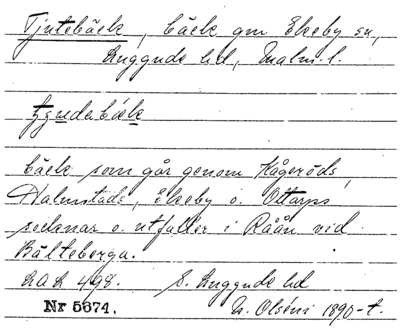 Tjutebäck, bäck gm Ekeby sn,
Luggude hd, Malm. l.
bäck som går genom Kågeröds,
Halmstads, Ekeby o. Ottarps
socknar o. utfaller i Råån vid
Bälteberga.
LAL 498. S. Luggude hd
Nr 5674. N. Olséni 1890-t.